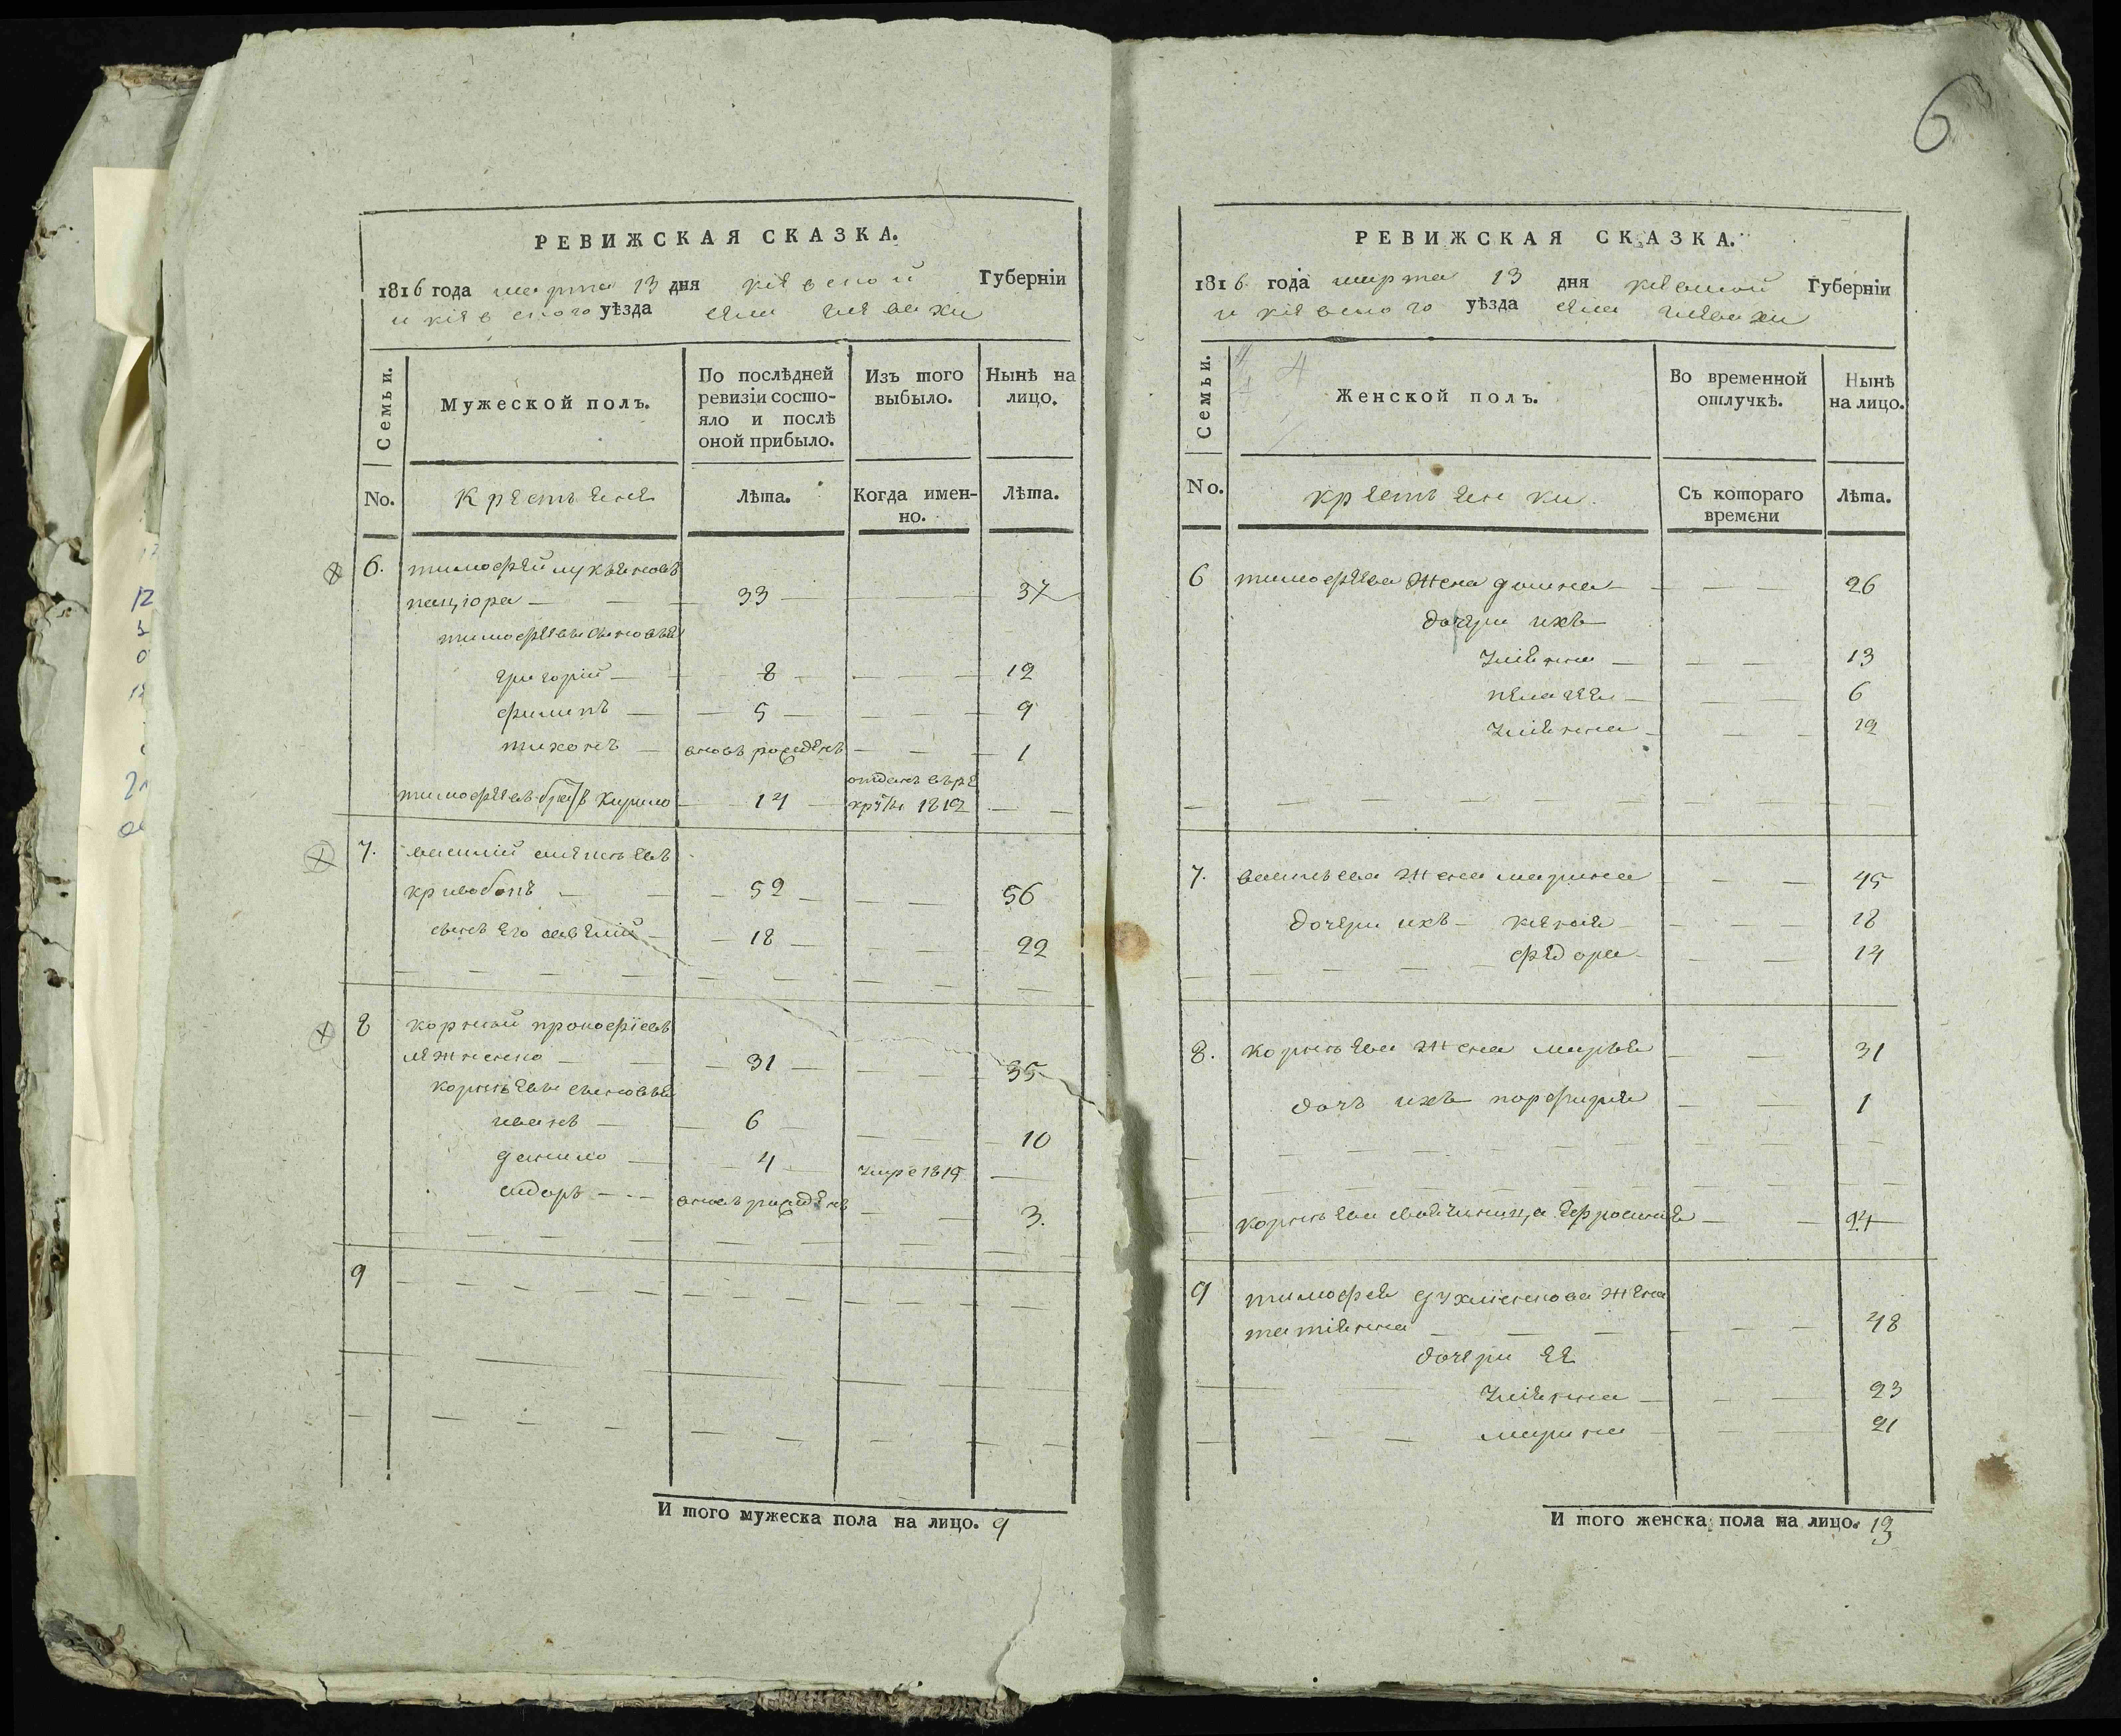 6
РЕВИЖСКАЯ СКАЗКА.
1816 года марта 13 дня кіевской Губерніи
и кіевского уѣзда села глевахи
Семьи.
Мужеской полъ.
По послѣдней ревизіи состояло и послѣ оной прибыло.
Изъ того выбыло.
Нынѣ на лицо.
No.
Крестьяне
Лѣта.
Когда именно.
Лѣта.
6. тимофей лукьяновъ
пацюра — 33 — 37
тимофеевы сыновья
григорій — 8 — 12
филипъ — 5 — 9
тихонъ — вновь рожденъ — 1
тимофеевъ братъ Кирило — 14 — отданъ въ рекруты 1812
7. василій
кривобокъ — 52 — 56
сынъ его савелій — 18 — 22
8 корней прокофіевъ
— 31 — 35
корнѣевы сыновья
иванъ — 6 — 10
данило — 4 — умре 1815
сидоръ — вновь рожденъ — 3.
9
И того мужеска пола на лицо. 9
РЕВИЖСКАЯ СКАЗКА.
1816 года марта 13 дня кіевской Губерніи
и кіевского уѣзда села глевахи
Семьи.
Женской полъ.
Во временной отлучкѣ.
Нынѣ на лицо.
No.
крестьянки.
Съ котораго времени
Лѣта.
6 тимофеева жена домна — 26
дочери ихъ
уліянна — 13
пелагея — 6
уліянна — 12
7. васильева жена марина — 45
дочери ихъ — ксенія — 18
федора — 14
8. корнѣева жена марья — 31
дочь ихъ порфирия — 1
корнѣева свояченица Ефросинія — 24
9 тимофея жена
татіянна — 48
дочери ее
уліянна — 23
марина — 21
И того женска пола на лицо. 13